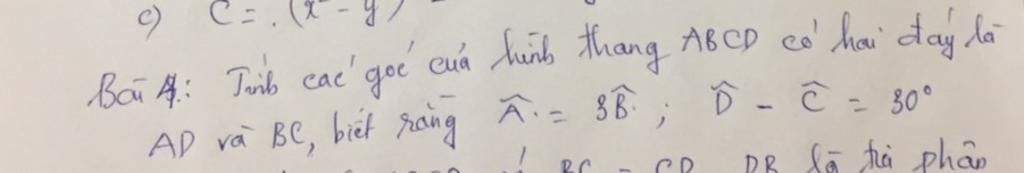 c) C = . (x - y)
Bài 4: Tính các góc của hình thang ABCD có hai đáy là
AD và BC, biết rằng Â = 3B̂ ; D̂ - Ĉ = 30°
BC = CD DB là tia phân